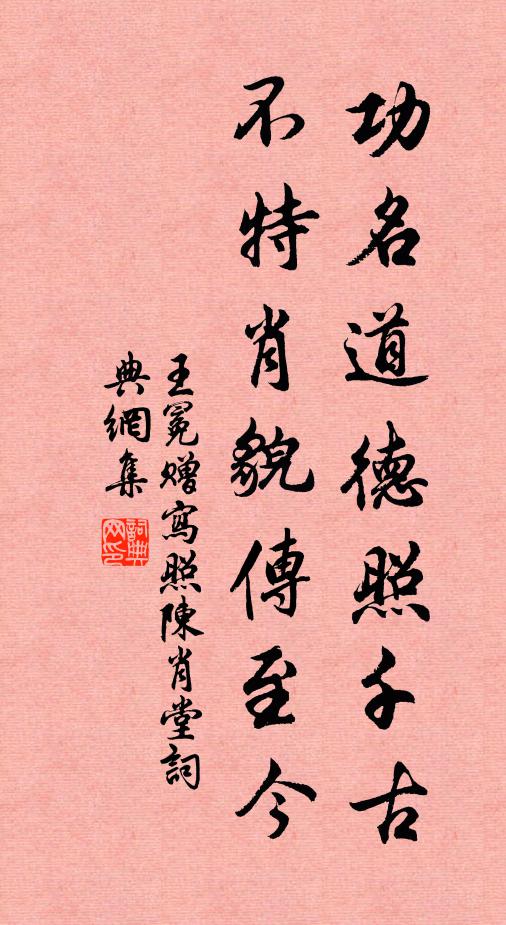 功名道德照千古
不特肖貌傳至今
王冕贈寫照陳肖堂詞
典網集
詞典
网印